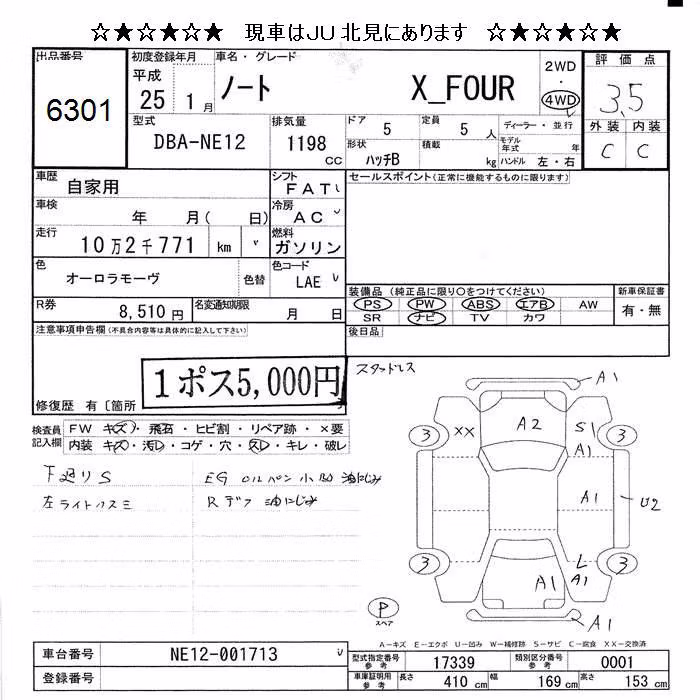 ☆★☆★☆★ 現車はJU北見にあります ☆★☆★☆★
出品番号
6301
初度登録年月
平成
25 1月
車名・グレード
ノート X_FOUR
2WD
・
4WD
評価点
3.5
外装 内装
C C
型式
DBA-NE12
排気量
1198
CC
ドア 5
定員 5 人
ディーラー・並行
形状 ハッチB
積載 kg
モデル年式 年
ハンドル 左・右
車歴
自家用
シフト
FAT
車検
年 月( 日)
冷房
AC
走行
10万2千771 km
燃料
ガソリン
色
オーロラモーヴ
色替
色コード
LAE
R券
8,510 円
名変通知期限
月 日
セールスポイント(正常に機能するものに限ります)
装備品(純正品に限り○をつけてください)
PS PW ABS エアB AW
SR ナビ TV カワ
新車保証書
有・無
後日品
注意事項申告欄(不具合内容等は具体的に記入して下さい)
1ポス5,000円
修復歴 有〔箇所
スタッドレス
検査員記入欄
FW キズ・飛石・ヒビ割・リペア跡・×要
内装 キズ・汚レ・コゲ・穴・スレ・キレ・破レ
下廻りS
左ライトクスミ
EG オイルパン 小凹 油にじみ
Rデフ 油にじみ
A1
A2
XX
S1
A1
3
3
A1
U2
3
3
L
A1
A1
A1
P
スペア
A-キズ E-エクボ U-凹み W-補修跡 S-サビ C-腐食 XX-交換済
車台番号
NE12-001713
登録番号
型式指定番号
参考
17339
類別区分番号
参考
0001
車庫証明用
参考
長さ 410 cm
幅 169 cm
高さ 153 cm